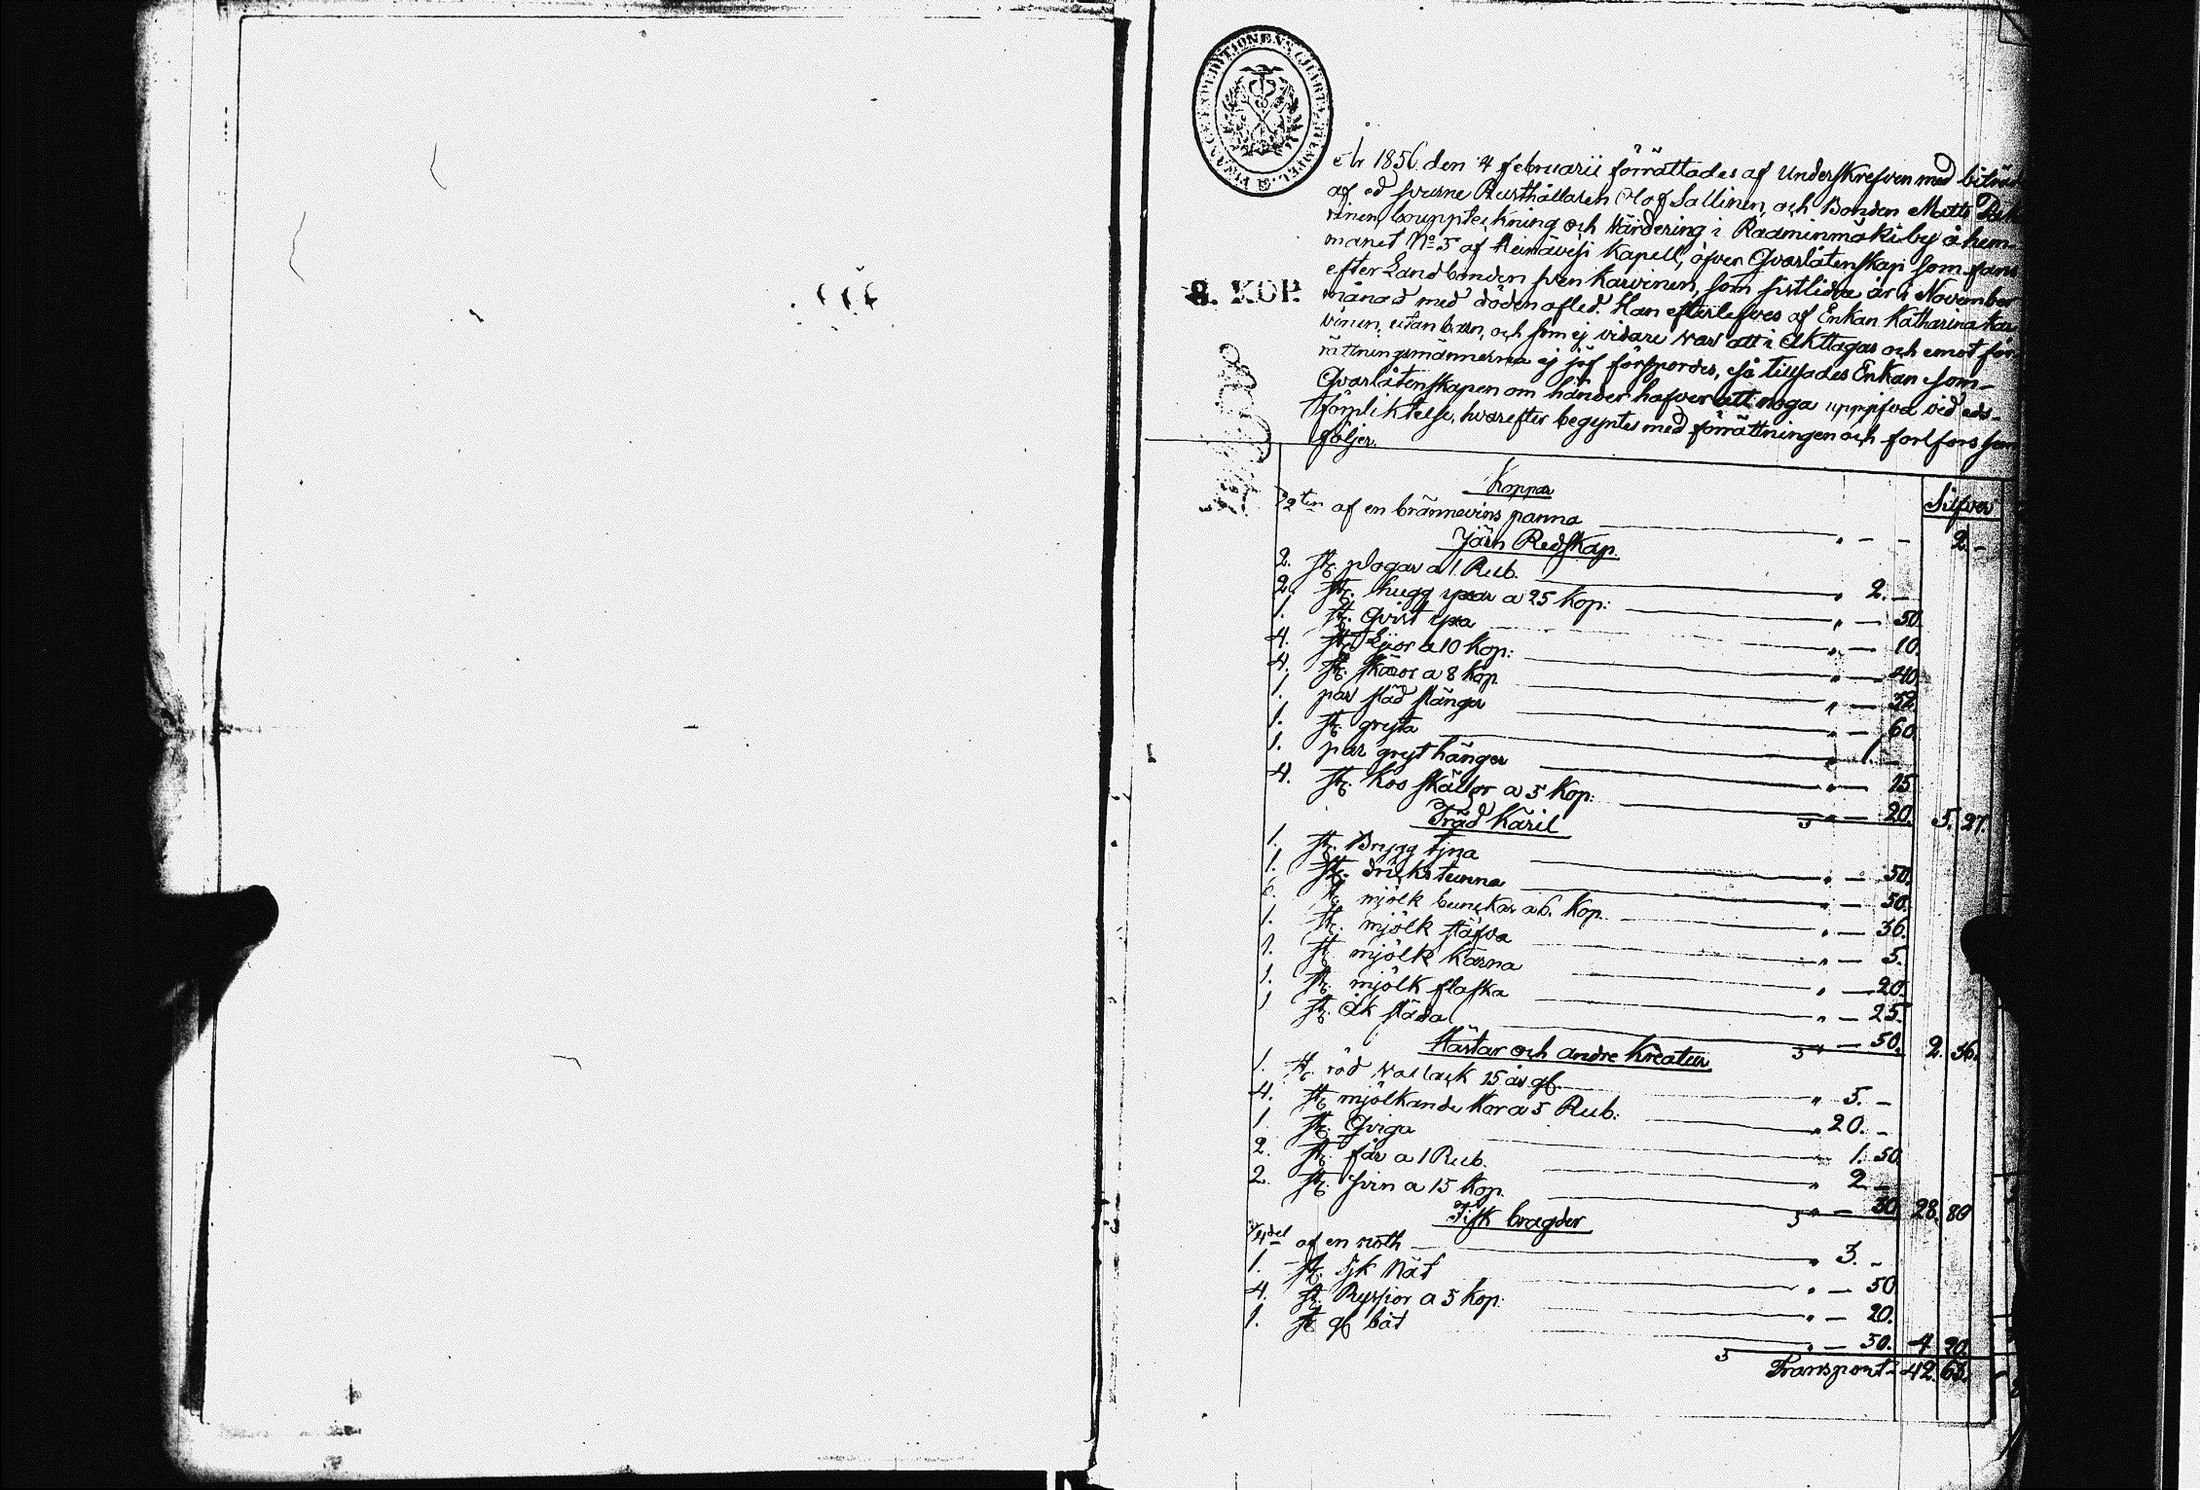 FINANCE EXPEDITIONENS CHARTÆ STEMPEL
8. KOP.
År 1856 den 4 februarii förrättades af Underskrefven med biträde
af ed svurne Rusthållaren Olof Sallinen, och Bonden Matts
vinen, bouppteckning och Värdering i Raaminmäki by å hem-
manet No 5 af Heinävesi Kapell, öfver Qvarlåtenskap som fans
efter Landbonden Sven Karvinen, som sistlidne år i November
månad med döden afled. Han efterlefves af Enkan Katharina Kar
vinen, utan barn, och som ej vidare var att i Akttaga och emot för-
rättningsmännerna ej jäf förspordes, så tillsades Enkan som
Qvarlåtenskapen om händer hafver att noga uppgifva vid eds-
förpliktelse, hvarefter begyntes med förrättningen och fortfors som
följer.
Koppar
Silfver
af en brännevins panna " - - 2. -
Järn Redskap.
2. st. plogar a 1 Rub. " 2. -
2. st. hugg yxor a 25 Kop: " - 50.
1. st. Qvist yxa " - 10.
4. st. Lijor a 10 Kop: " - 40.
4. st. skäror a 8 Kop " - 32
1. par städ stänger " - 60.
1. st. gryta " 1. -
1. par gryt hänger " - 15
4. st. Koo skällor a 5 Kop: " - 20. 5. 27.
Träd Käril
1. st. Brygg tyna " - 50.
1. st. dricks tunna " - 50.
6. st. mjölk bunckar a 6. Kop. " - 36.
1. st. mjölk stäfva " - 5.
1. st. mjölk kärna " - 20.
1. st. mjölk flaska " - 25.
1 st. Åk släda " - 50. 2. 36.
Hästar och andre Kreatur
1. st. röd vallack 15 år gl. " 5. -
4. st. mjölkande Kor a 5 Rub: " 20. -
1. st. Qviga " 1. 50.
2. st. får a 1 Rub. " 2 -
2. st. svin a 15 Kop. " - 30 28. 80
Fisk bragder
1/4del af en noth " 3. -
1. st. Sik Nät " - 50
4. st. Ryssior a 5 Kop: " - 20.
1. st. gl båt " - 50. 4 20.
Transport 42. 63.